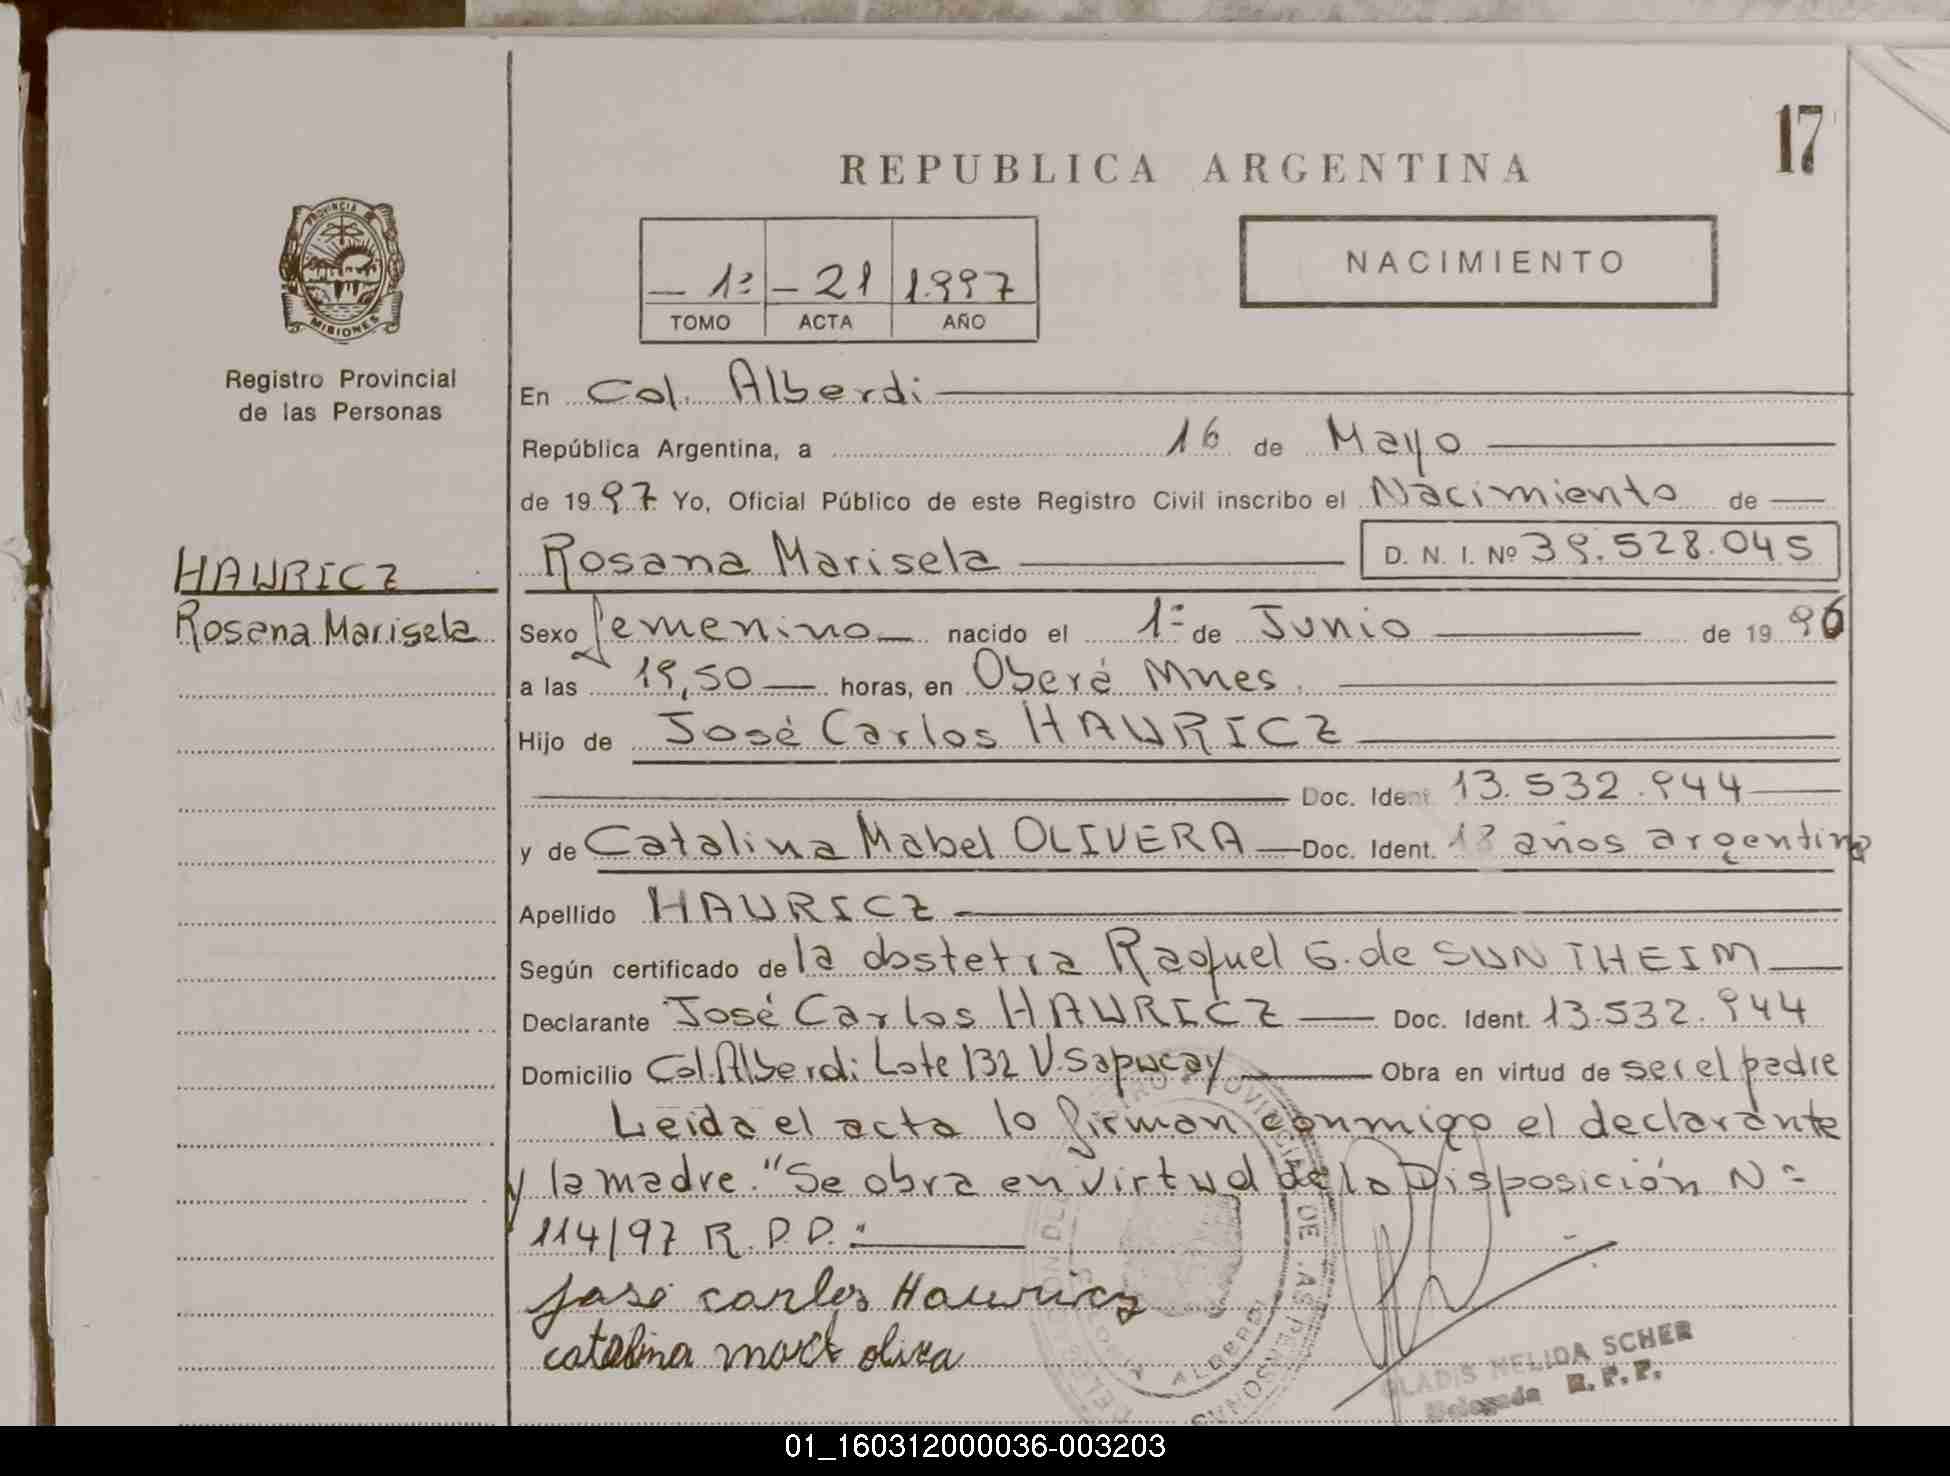 17
REPUBLICA ARGENTINA
PROVINCIA DE
MISIONES
Registro Provincial
de las Personas
— 1º — 21 1.997
TOMO ACTA AÑO
NACIMIENTO
En Col. Alberdi
República Argentina, a 16 de Mayo
de 1997 Yo, Oficial Público de este Registro Civil inscribo el Nacimiento de
HAURICZ
Rosana Marisela
Rosana Marisela D. N. I. Nº 39.528.045
Sexo femenino nacido el 1º de Junio de 1996
a las 19,50 horas, en Oberá Mnes.
Hijo de José Carlos HAURICZ
Doc. Ident. 13.532.944
y de Catalina Mabel OLIVERA Doc. Ident. 18 años argentina
Apellido HAURICZ
Según certificado de la obstetra Raquel G. de SUNTHEIM
Declarante José Carlos HAURICZ Doc. Ident. 13.532.944
Domicilio Col. Alberdi Lote 132 V. Sapucay Obra en virtud de ser el padre
Leida el acta lo firman conmigo el declarante
y la madre. "Se obra en virtud de la Disposición Nº
114/97 R.P.P."
jose carlos Hauricz
catalina
ALBERDI
GLADIS NELIDA SCHER
Delegada R.P.P.
01_160312000036-003203